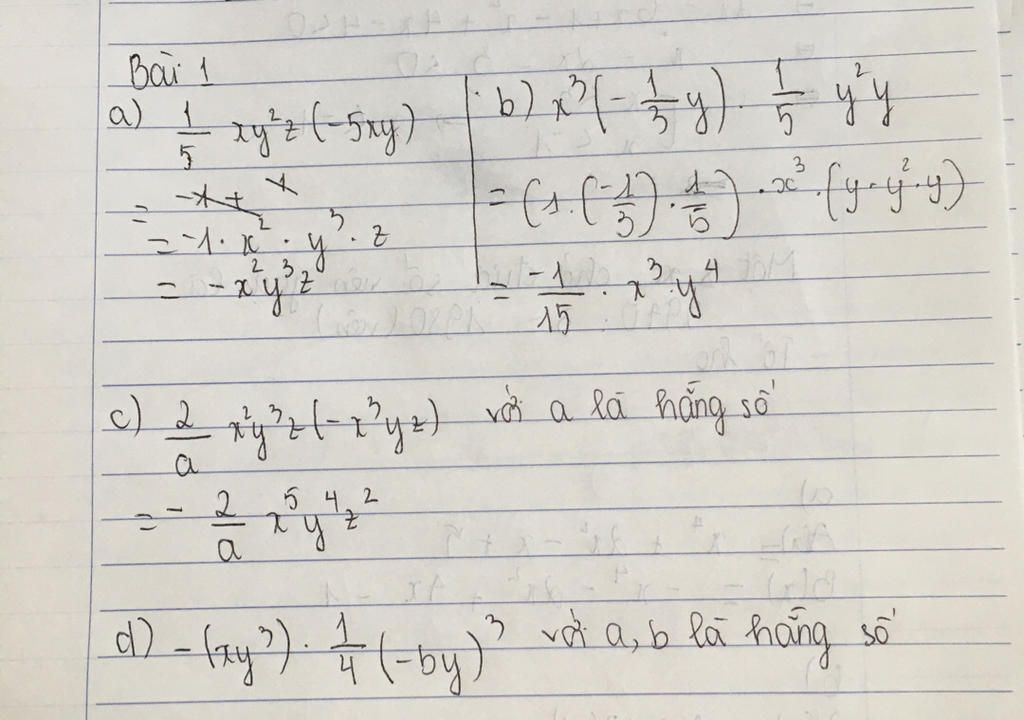 Bài 1
a) 1/5 xy²z (-5xy)
=
= -1 · x² · y³ · z
= - x²y³z
b) x³ (- 1/3 y) · 1/5 y² y
= (1 · (-1/3) · 1/5) · x³ · (y · y² · y)
= -1/15 · x³ · y⁴
c) 2/a x²y³z (-x³yz) với a là hằng số
= - 2/a x⁵y⁴z²
d) - (xy³) · 1/4 (-by)³ với a, b là hằng số